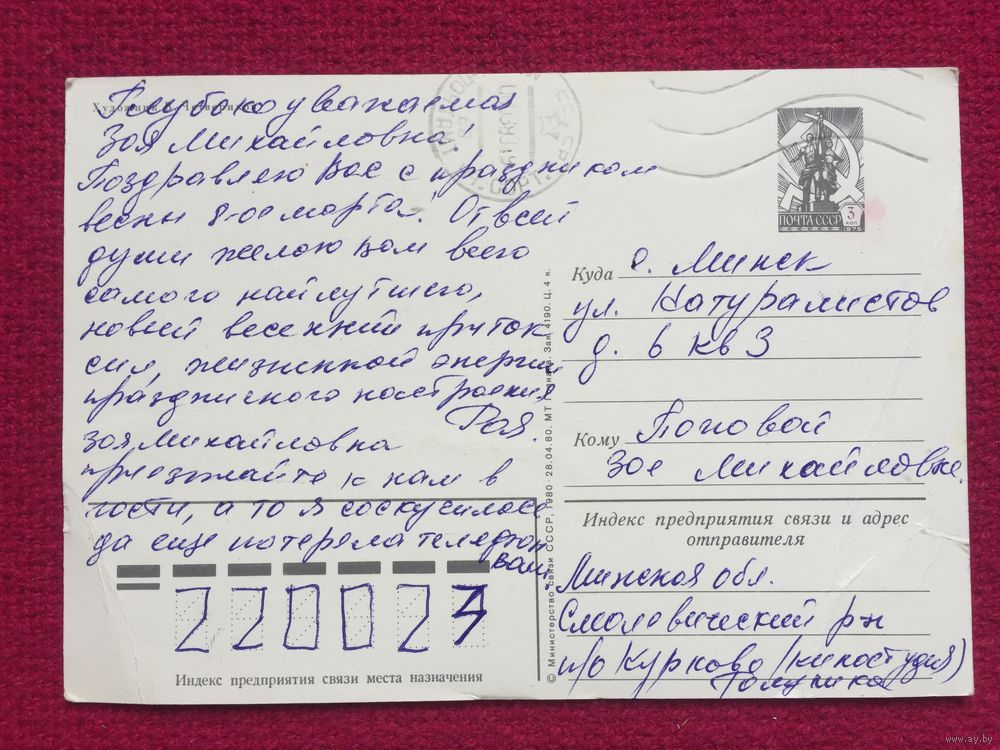 Глубокоуважаемая
Зоя Михайловна!
Поздравляю Вас с праздником
весны 8-ое марта! От всей
души желаю Вам всего
самого найлутшего,
новый весенний приток
сил, жизненной энергии,
праздничного настроения
Рая.
Зоя Михайловна
приезжайте к нам в
гости, а то я соскучилась
да еще потеряла телефон
Ваш.
220023
Индекс предприятия связи места назначения
© Министерство связи СССР, 1980 · 28.04.80. МТ Гознака. Зак. 4190. Ц. 4 к.
Художник
ПОЧТА СССР 3 КОП
1976
Куда г. Минск
ул. Натуралистов
д. 6 кв 3
Кому Поповой
Зое Михайловне.
Индекс предприятия связи и адрес
отправителя
Минская обл.
Смолевический р-н
п/о Курково (киностудия)
www.ay.by